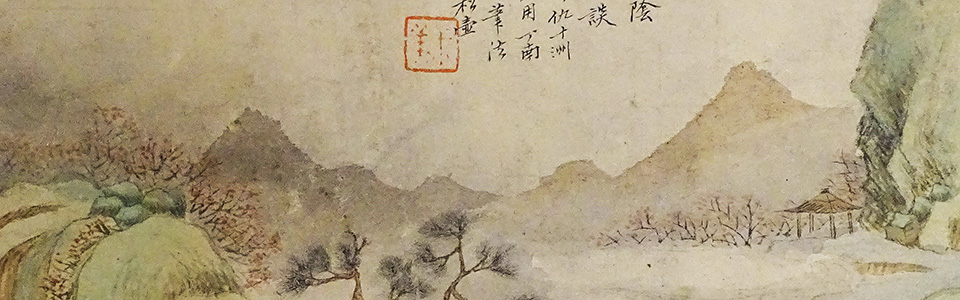 陰
談
仇十洲
用丁南
筆法
松壺